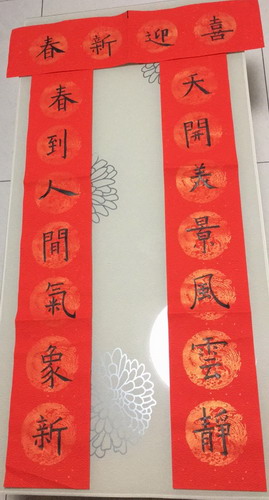 喜迎新春
天開美景風雲靜
春到人間氣象新